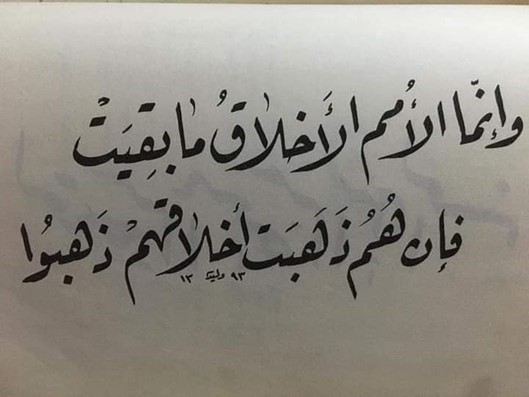 وإنّما الأُمم الأَخلاقُ ما بقِيَتْ
فإن هُمُ ذَهَبَت أخلاقهمْ ذَهبوُا